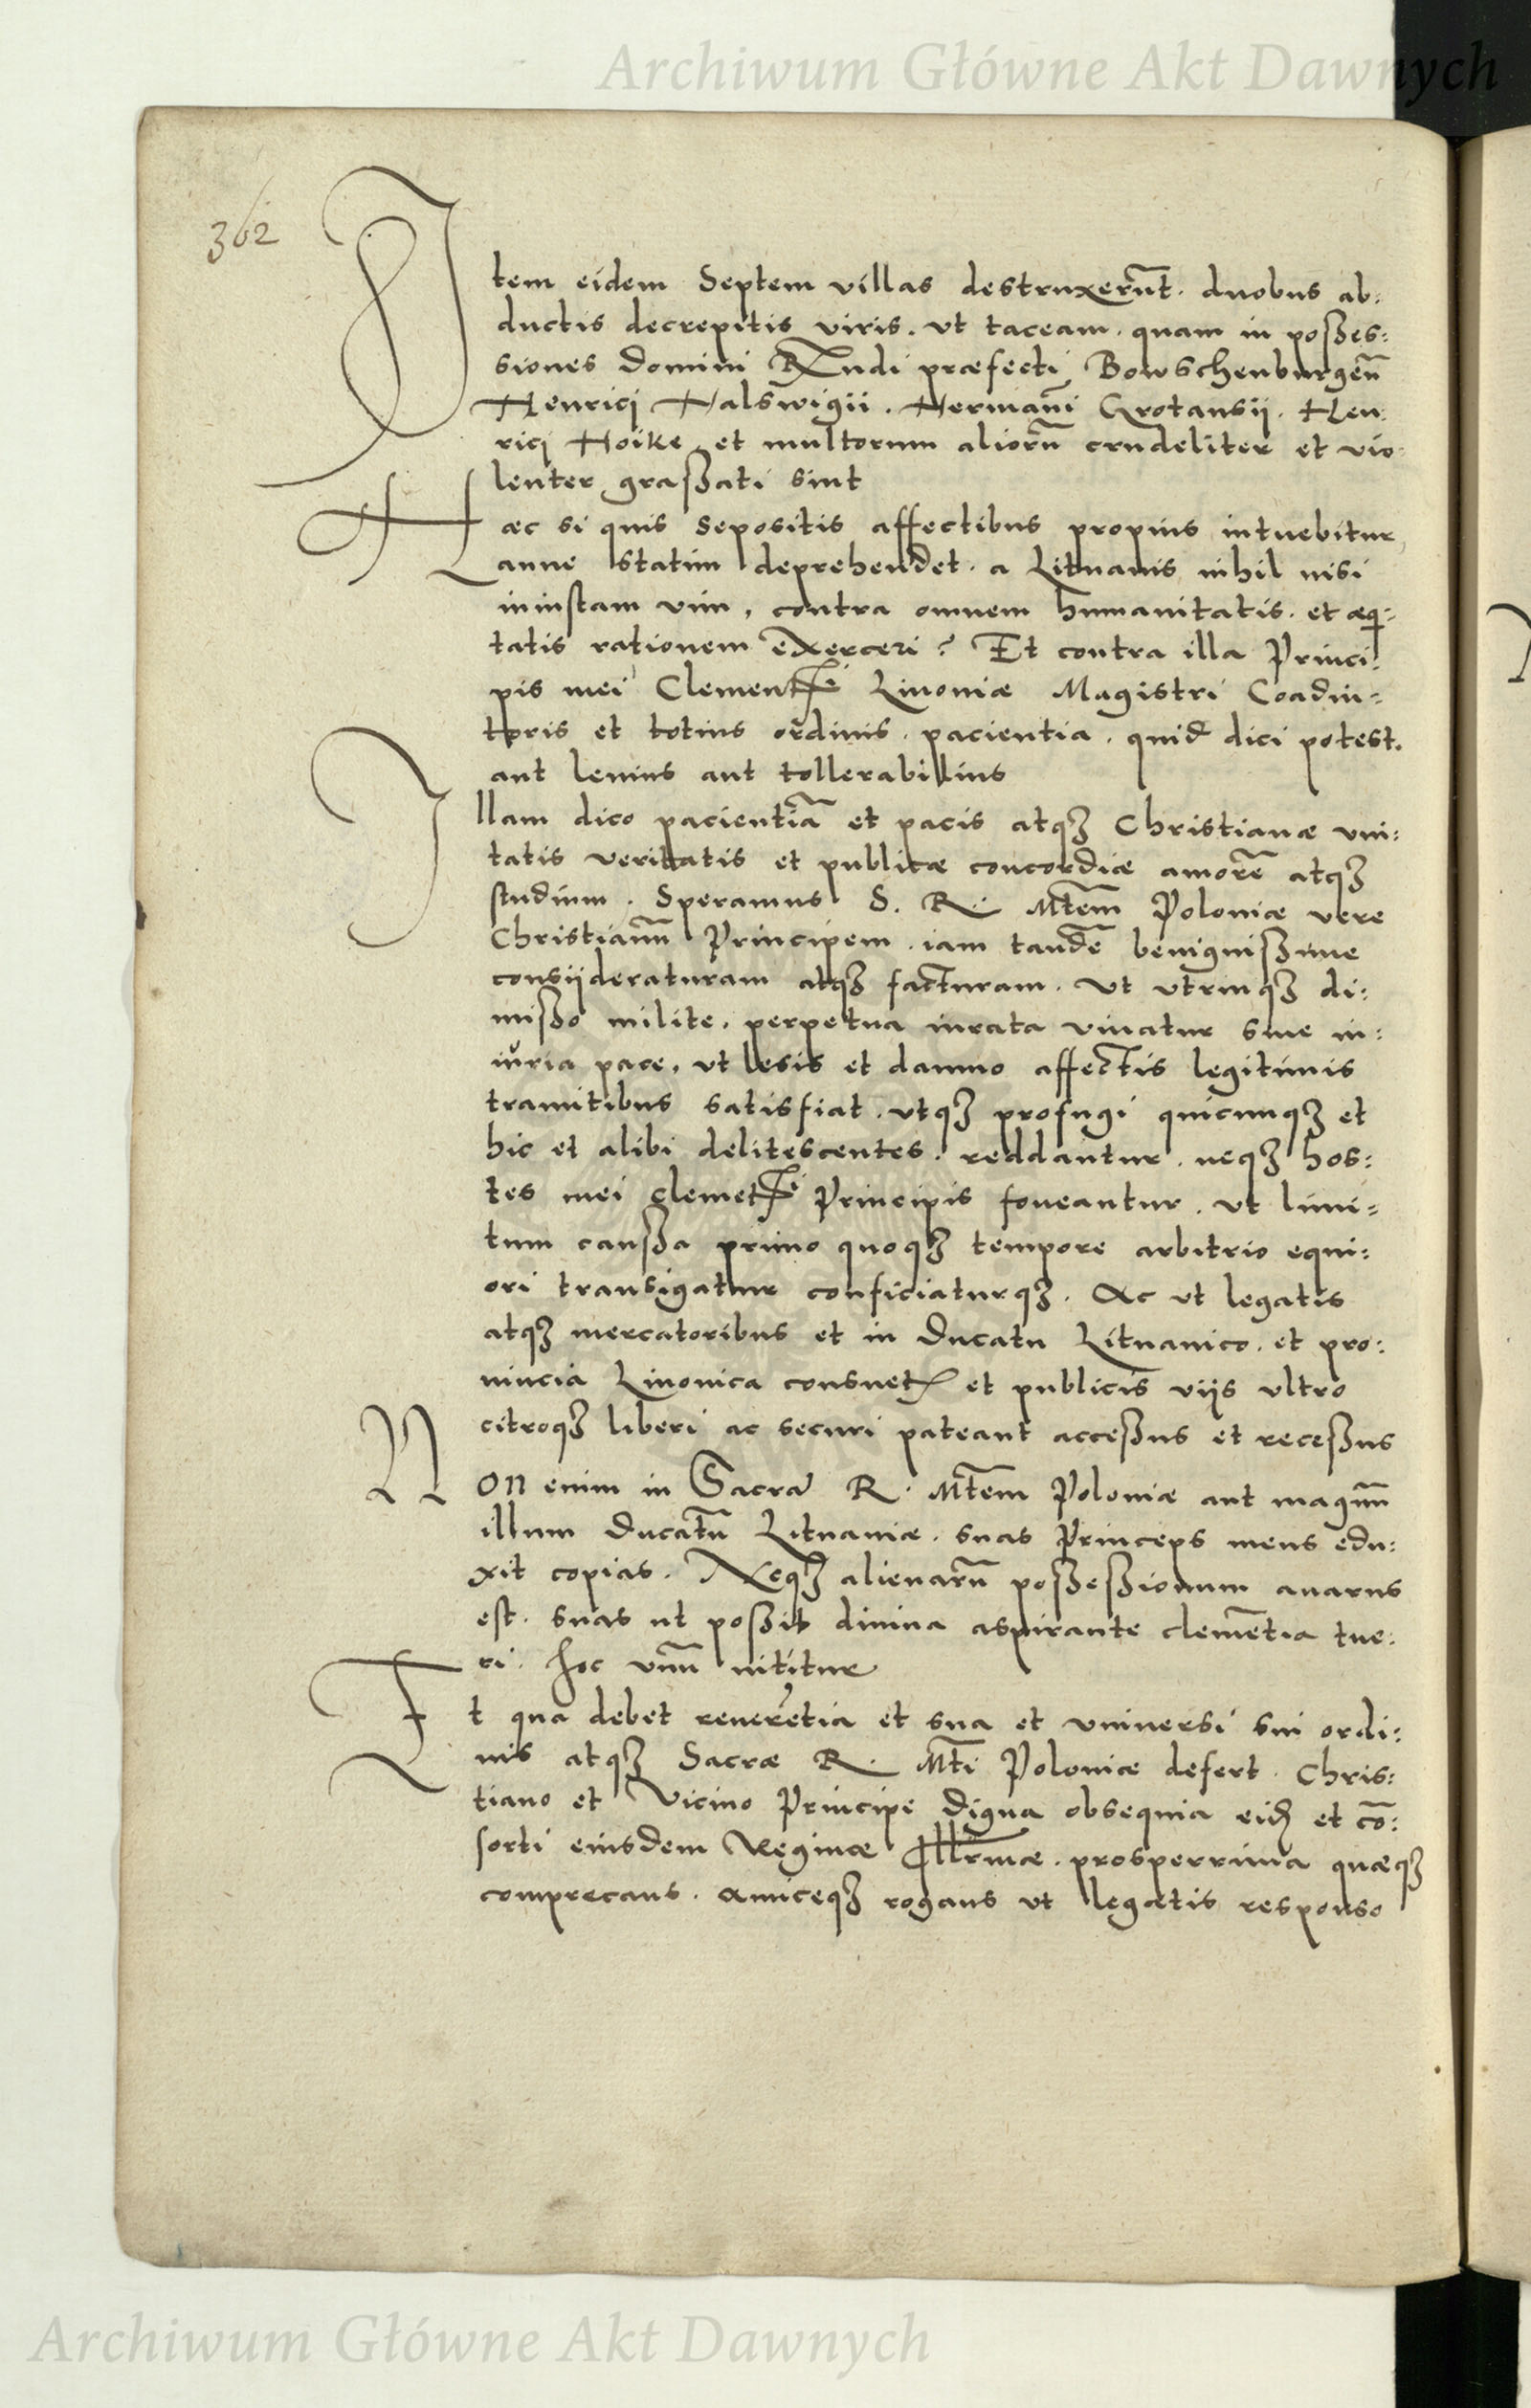 Archiwum Główne Akt Dawnych
362
Item eidem Septem villas destruxerũt. duobus ab:
ductis decrepitis viris. ut taceam. quam in poßes:
siones Domini Rndi præfecti Bowschenburgeñ
Henrici Halswigii. Hermañi Grotausii. Hen:
rici Hoike et multorum aliorũ crudeliter et vio:
lenter graßati sint
Hæc si quis Sepositis affectibus propius intuebitur
anne statim deprehendet. a Lituanis nihil nisi
iniustam vim, contra omnem humanitatis. et æq̃:
tatis rationem exerceri? Et contra illa Princi:
pis mei Clementssi Liuoniæ Magistri Coadiu:
toris et totius ordinis. pacientia. quid dici potest.
aut lenius aut tollerabilius
Illam dico pacientiã et pacis atqȝ Christianæ uni:
tatis veritatis et publicæ concordiæ amorẽ atqȝ
studium. Speramus S. R. Mtem Poloniæ vere
Christianũ Principem. iam tandẽ benignißime
consijderaturam atqȝ facturam. Ut utrinqȝ di:
mißo milite, perpetua iurata viuatur sine in:
iuria pace, ut lesis et damno affectis legitimis
tramitibus satisfiat. utqȝ profugi quicunqȝ et
hic et alibi delitescentes. reddantur. neqȝ hos:
tes mei clemetssi Principis foueantur. ut limi:
tum caußa primo quoqȝ tempore arbitrio equi:
ori transigatur conficiaturqȝ. Ac ut legatis
atqȝ mercatoribus et in Ducatu Lituanico. et pro:
uincia Liuonica consuet et publicis viis ultro
citroqȝ liberi ac securi pateant acceßus et receßus
Non enim in Sacrã R. Mtem Poloniæ aut magnũ
illum Ducatũ Lituaniæ. suas Princeps meus edu:
xit copias. Neqȝ alienarũ poßeßionum auarus
est. suas ut poßit diuina aspirante clemẽtia tue:
ri. hoc unũ nititur
Et qua debet reuerẽtia et sua et uniuersi sui ordi:
nis atqȝ Sacræ R. Mti Poloniæ defert. Chris:
tiano et Vicino Principe Digna obsequia eid et cõ:
sorti eiusdem Reginæ Illrmæ. prosperrima quæqȝ
comprecans. amiceqȝ rogans ut legatis responso
Archiwum Główne Akt Dawnych